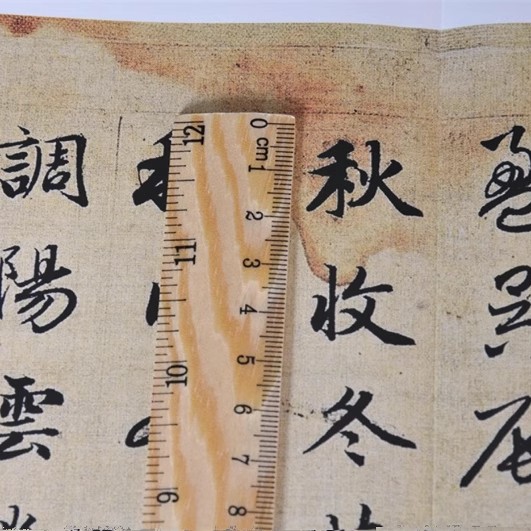 盈昃辰
秋收冬
調陽雲
0 cm 1 2 3 4 5 6 7 8
12 11 10 9